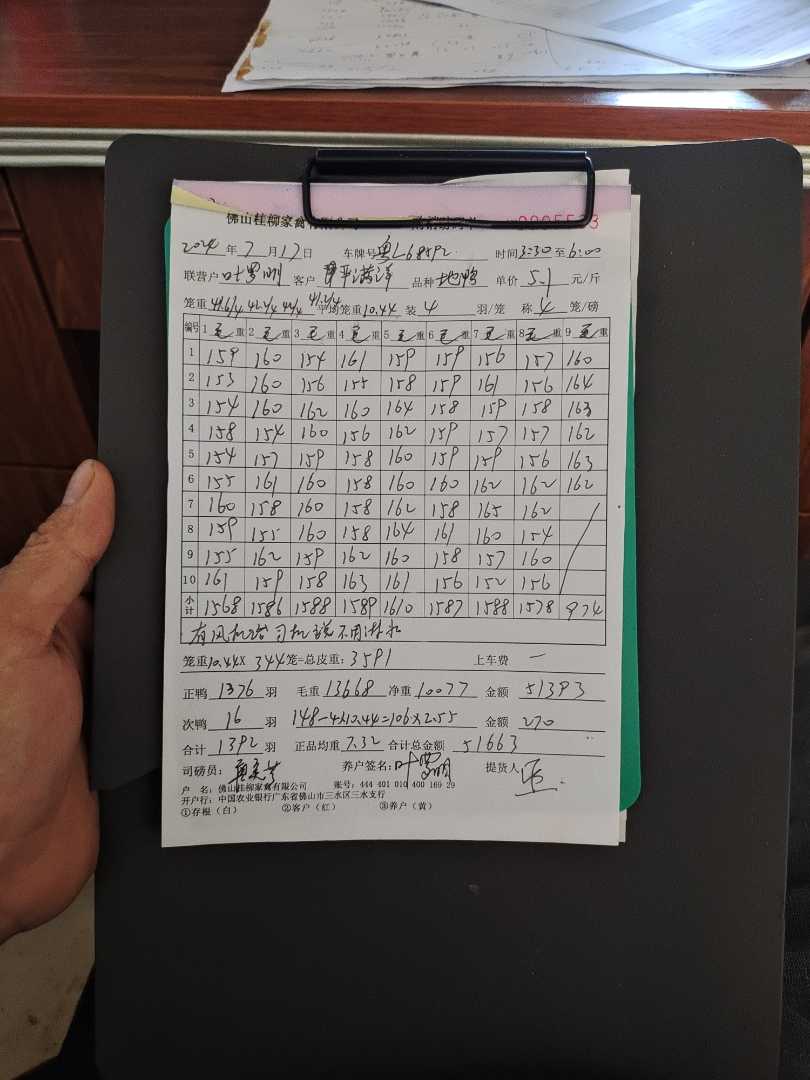 佛山桂柳家禽有限公司
2024 年 7 月 17 日 车牌号 粤L68592 时间 3:30 至 6:00
联营户 叶罗明 客户 品种 地鸭 单价 5.1 元/斤
笼重 41.6/4 42/4 平均笼重 10.44 装 4 羽/笼 称 4 笼/磅
编号 1 毛 重 2 毛 重 3 毛 重 4 毛 重 5 毛 重 6 毛 重 7 毛 重 8 毛 重 9 毛 重
1 159 160 154 161 159 159 156 157 160
2 153 160 156 155 158 159 161 156 164
3 154 160 162 160 164 158 159 158 163
4 158 154 160 156 162 159 157 157 162
5 154 157 159 158 160 159 159 156 163
6 155 161 160 158 160 160 162 162 162
7 160 158 160 158 162 158 165 162
8 159 155 160 158 164 161 160 154
9 155 162 159 162 160 158 157 160
10 161 159 158 163 161 156 152 156
小计 1568 1586 1588 1589 1610 1587 1588 1578 974
有风机 司机说不用淋水
笼重 10.44 X 344 笼=总皮重: 3591 上车费 —
正鸭 1376 羽 毛重 13668 净重 10077 金额 51393
次鸭 16 羽 148-4×10.44=106×2.55 金额 270
合计 1392 羽 正品均重 7.32 合计总金额 51663
司磅员: 养户签名: 叶罗明 提货人
户 名: 佛山桂柳家禽有限公司 账号: 444 401 010 400 169 29
开户行: 中国农业银行广东省佛山市三水区三水支行
①存根（白） ②客户（红） ③养户（黄）